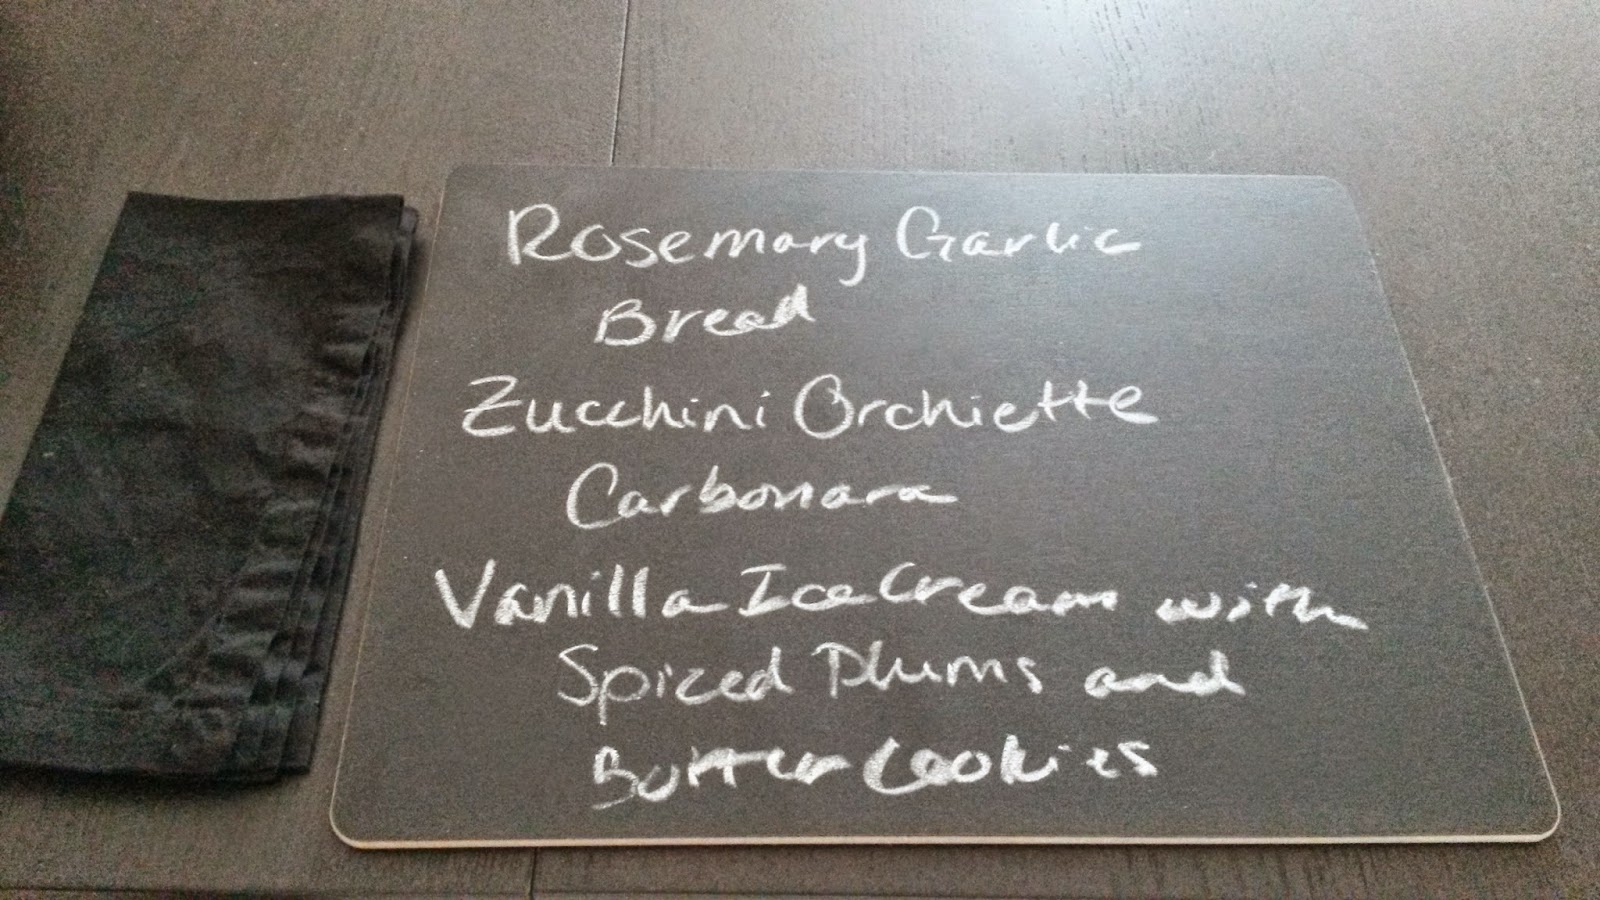 Rosemary Garlic
Bread
Zucchini Orchiette
Carbonara
Vanilla Ice Cream with
Spiced Plums and
Butter Cookies